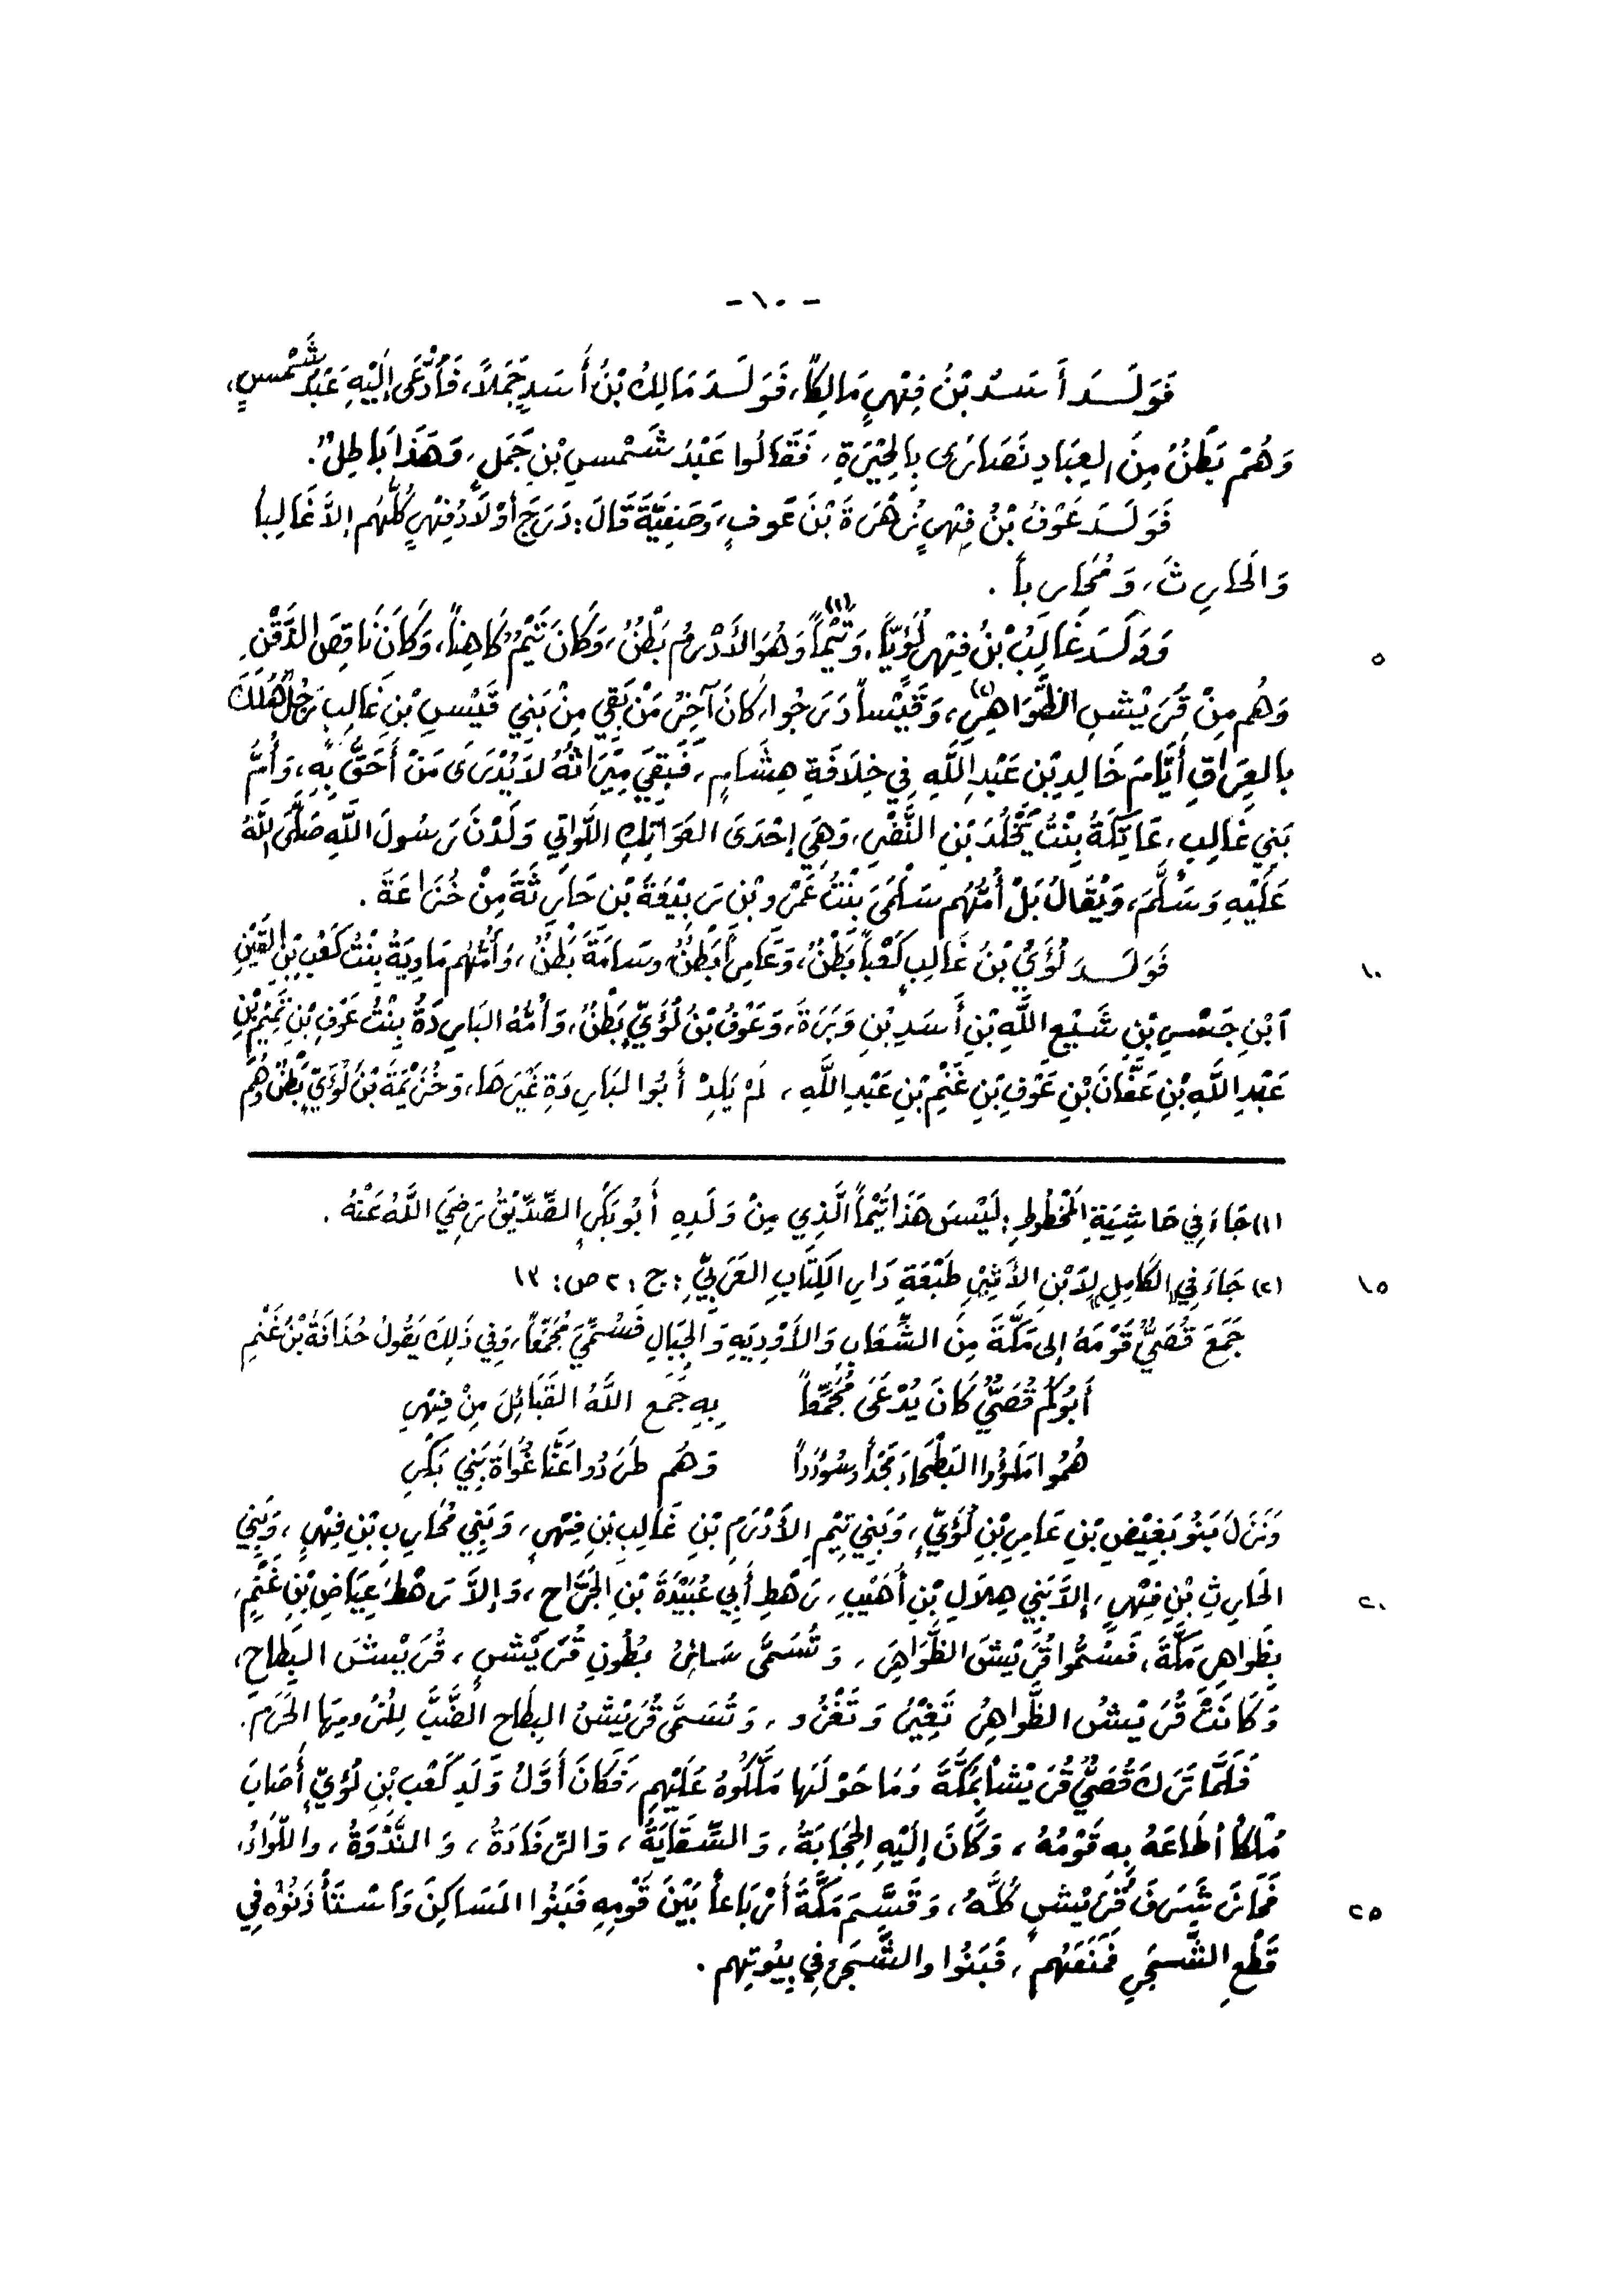 - ١٠ -
فَوَلَـدَ أَسَـدُ بْنُ فِهْرٍ مَالِكاً، فَوَلَـدَ مَالِكُ بْنُ أَسَدٍ جَمَلاً، فَادُّعَى إِلَيْهِ عَبْدُ شَمْسٍ،
وَهُمْ بَطْنٌ مِنَ العِبَادِ نَصَارَى بِالحِيْرَةِ، فَقَالُوا عَبْدُ شَمْسِ بْنِ جَمَلٍ، وَهَذَا بَاطِلٌ.
فَوَلَـدَ عَوْفُ بْنُ فِهْرٍ زُهْرَةَ بْنَ عَوْفٍ، وَصَنِفِيَّةَ قَالَ: دَرَجَ أَوْلاَدُ فِهْرٍ كُلُّهُم إلاَّ غَالِباً
وَالحَارِثَ، وَمُحَارِباً .
وَوَلَـدَ غَالِبُ بْنُ فِهْرٍ لُؤَيّاً، وَتَيْماً (١) وَهُوَ الأَدْرَمُ بَطْنٌ، وَكَانَ تَيْمٌ كَاهِناً، وَكَانَ نَاقِصَ الذَّقْنِ.
٥
وَهُم مِنْ قُرَيْشِ الظَّوَاهِرِ (٢)، وَقَيْساً دَرَجُوا، كَانَ آخِرُ مَنْ بَقِي مِنْ بَنِي قَيْسِ بْنِ غَالِبٍ رَجُلٌ هَلَكَ
بِالعِرَاقِ أَيَّامَ خَالِدِ بْنِ عَبْدِ اللَّهِ فِي خِلاَفَةِ هِشَامٍ، فَبَقِيَ مِيْرَاثُهُ لاَ يُدْرَى مَنْ أَحَقُّ بِهِ، وَأُمُّ
بَنِي غَالِبٍ، عَاتِكَةُ بِنْتُ يَخْلُدَ بْنِ النَّضْرِ، وَهِيَ إِحْدَى العَوَاتِكِ اللَّوَاتِي وَلَدْنَ رَسُولَ اللَّهِ صَلَّى اللَّهُ
عَلَيْهِ وَسَلَّمَ، وَيُقَالُ بَلْ أُمُّهُم سَلْمَى بِنْتُ عَمْرِو بْنِ رَبِيْعَةَ بْنِ حَارِثَةَ مِنْ خُزَاعَةَ .
فَوَلَـدَ لُؤَيُّ بْنُ غَالِبٍ كَعْباً بَطْنٌ، وَعَامِراً بَطْنٌ، وسَامَةَ بَطْنٌ، وَأُمُّهُم مَاوِيَةُ بِنْتُ كَعْبِ بْنِ القَيْنِ
١٠
آبْنِ جَسْرِ بْنِ شَيْعِ اللَّهِ بْنِ أَسَدِ بْنِ وَبَرَةَ، وَعَوْفُ بْنُ لُؤَيٍّ بَطْنٌ، وَأُمُّهُ البَارِدَةُ بِنْتُ عَوْفِ بْنِ تَمِيْمِ بْنِ
عَبْدِ اللَّهِ بْنِ عَفَّانَ بْنِ عَوْفِ بْنِ غَنْمِ بْنِ عَبْدِ اللَّهِ ، لَمْ يَلِدْ أَبُو البَارِدَةِ غَيْرَهَا، وَخُزَيْمَةَ بْنَ لُؤَيٍّ بَطْنٌ وَهُم
(١) جَاءَ فِي حَاشِيَةِ المَخْطُوطِ: لَيْسَ هَذَا تَيْماً الَّذِي مِنْ وَلَدِهِ أَبُو بَكْرٍ الصِّدِّيْقُ رَضِيَ اللَّهُ عَنْهُ .
(٢) جَاءَ فِي الكَامِلِ لِابْنِ الأَثِيْرِ طَبْعَةِ دَارِ الكِتَابِ العَرَبِيِّ: ج: ٢ ص: ١٣
١٥
جَمَعَ قُصَيٌّ قَوْمَهُ إلى مَكَّةَ مِنَ الشِّعَابِ وَالأَوْدِيَةِ وَالجِبَالِ فَسُمِّيَ مُجَمِّعاً، وَفِي ذَلِكَ يَقُولُ حُذَافَةُ بْنُ غَنْمِ
أَبُوكُم قُصَيٌّ كَانَ يُدْعَى مُجَمِّعاً بِهِ جَمَع اللَّهُ القَبَائِلَ مِنْ فِهْرِ
هُمُوا مَلَؤُوا البَطْحَاءَ مَجْداً وسُؤْدَداً وَهُم طَرَدُوا عَنَّا غُوَاةَ بَنِي بَكْرِ
وَنَزَلَ بَنُو بَغِيْضِ بْنِ عَامِرِ بْنِ لُؤَيٍّ، وَبَنِي تَيْمِ الأَدْرَمِ بْنِ غَالِبِ بْنِ فِهْرٍ، وَبَنِي مُحَارِبِ بْنِ فِهْرٍ، وَبَنِي
الحَارِثِ بْنِ فِهْرٍ، إلاَّ بَنِي هِلاَلِ بْنِ أُهَيْبِ، رَهْطِ أَبِي عُبَيْدَةَ بْنِ الجَرَّاحِ، وَإلاَّ رَهْطَ عِيَاضِ بْنِ غَنْمٍ،
٢٠
بِظَوَاهِرِ مَكَّةَ، فَسُمُّوا قُرَيْشَ الظَّوَاهِرِ، وَتُسَمَّى سَائِرُ بُطُونِ قُرَيْشٍ، قُرَيْشَ البِطَاحِ،
وَكَانَتْ قُرَيْشُ الظَّوَاهِرُ تَغِيْرُ وَتَغْزُو، وَتُسَمَّى قُرَيْشُ البِطَاحِ الضَّبَّ لِلُزُومِهَا الحَرَمَ.
فَلَمَّا تَرَكَ قُصَيٌّ قُرَيْشاً بِمَكَّةَ وَمَا حَوْلَهَا مَلَّكُوهُ عَلَيْهِم، فَكَانَ أَوَّلُ وَلَدِ كَعْبِ بْنِ لُؤَيٍّ أَصَابَ
مُلْكاً أَطَاعَهُ بِهِ قَوْمُهُ، وَكَانَ إِلَيْهِ الحِجَابَةُ، وَالسِّقَايَةُ، وَالرِّفَادَةُ، وَالنَّدْوَةُ، واللِّوَاءُ،
فَحَازَ شَرَفَ قُرَيْشٍ كُلَّهُ، وَقَسَّمَ مَكَّةَ أَرْبَاعاً بَيْنَ قَوْمِهِ فَبَنُوا المَسَاكِنَ وَآسْتَأْذَنُوْهُ فِي
٢٥
قَطْعِ الشَّجَرِ فَمَنَعَهُم، فَبَنُوا والشَّجَرُ فِي بِيُوتِهِم .